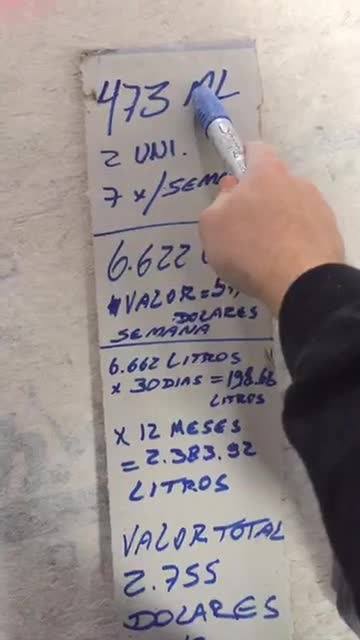 473 ML
2 UNI.
7 x/SEMA
6.622
VALOR =
DOLARES
SEMANA
6.662 LITROS
x 30 DIAS = 198.66
LITROS
x 12 MESES
= 2.383.92
LITROS
VALOR TOTAL
2.755
DOLARES